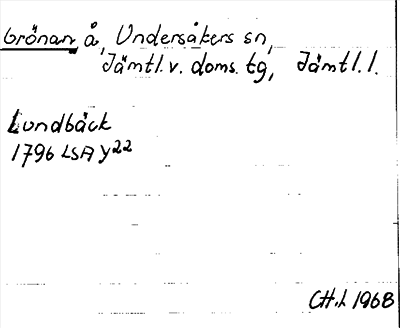 Grönan, å, Undersåkers sn,
Jämtl. v. doms. tg, Jämtl. l.
Lundbäck
1796 LSA Y22
CH.L 1968